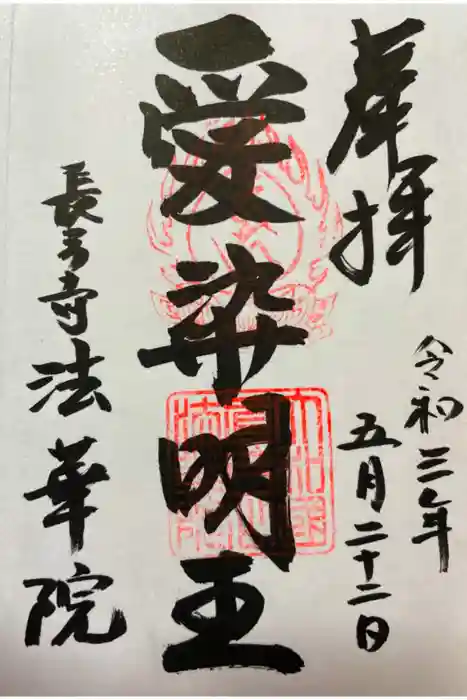 奉拝
令和三年
五月二十二日
愛染明王
長弓寺法華院